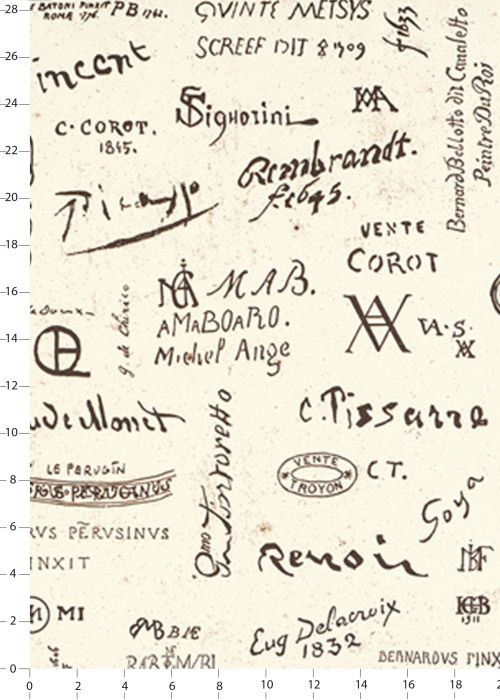 BATONI PINXIT
ROMA
PB 1762.
QVINTE METSYS
SCREEF DIT
f 1633
incent
C. COROT.
1845.
Signorini
Bernard Bellotto dit Canaletto
Peintre Du Roi
Rembrandt.
f. 1645.
Picasso
VENTE
COROT
MAB.
AMABOARO.
Michel Ange
g. de Chirico
V.A.S.
ude Monet
C. Pissarro
Tintoretto
LE PERUGIN
PERUGINUS
RVS PERVSINVS
INXIT
VENTE
TROYON
C T.
Goya
Renoir
MI
BIE
Eug Delacroix
1832
HB
1511
BERNARDVS PINX
28
26
24
22
20
18
16
14
12
10
8
6
4
2
0
0
2
4
6
8
10
12
14
16
18